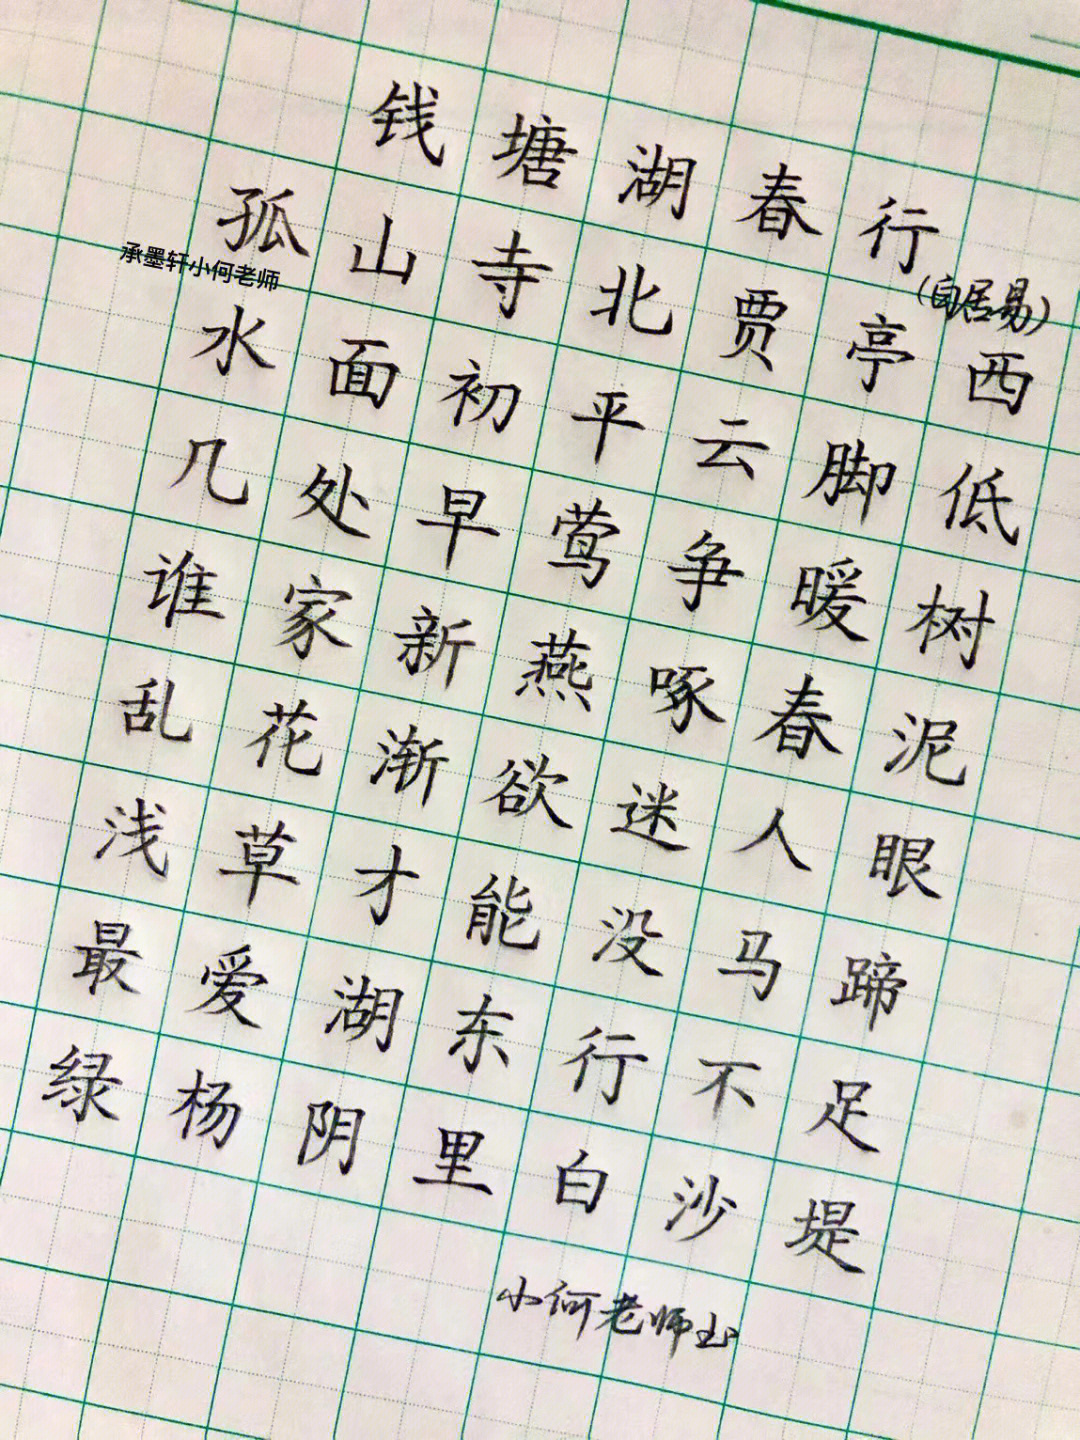 钱塘湖春行
(白居易)
孤山寺北贾亭西
承墨轩小何老师
水面初平云脚低
几处早莺争暖树
谁家新燕啄春泥
乱花渐欲迷人眼
浅草才能没马蹄
最爱湖东行不足
绿杨阴里白沙堤
小何老师书